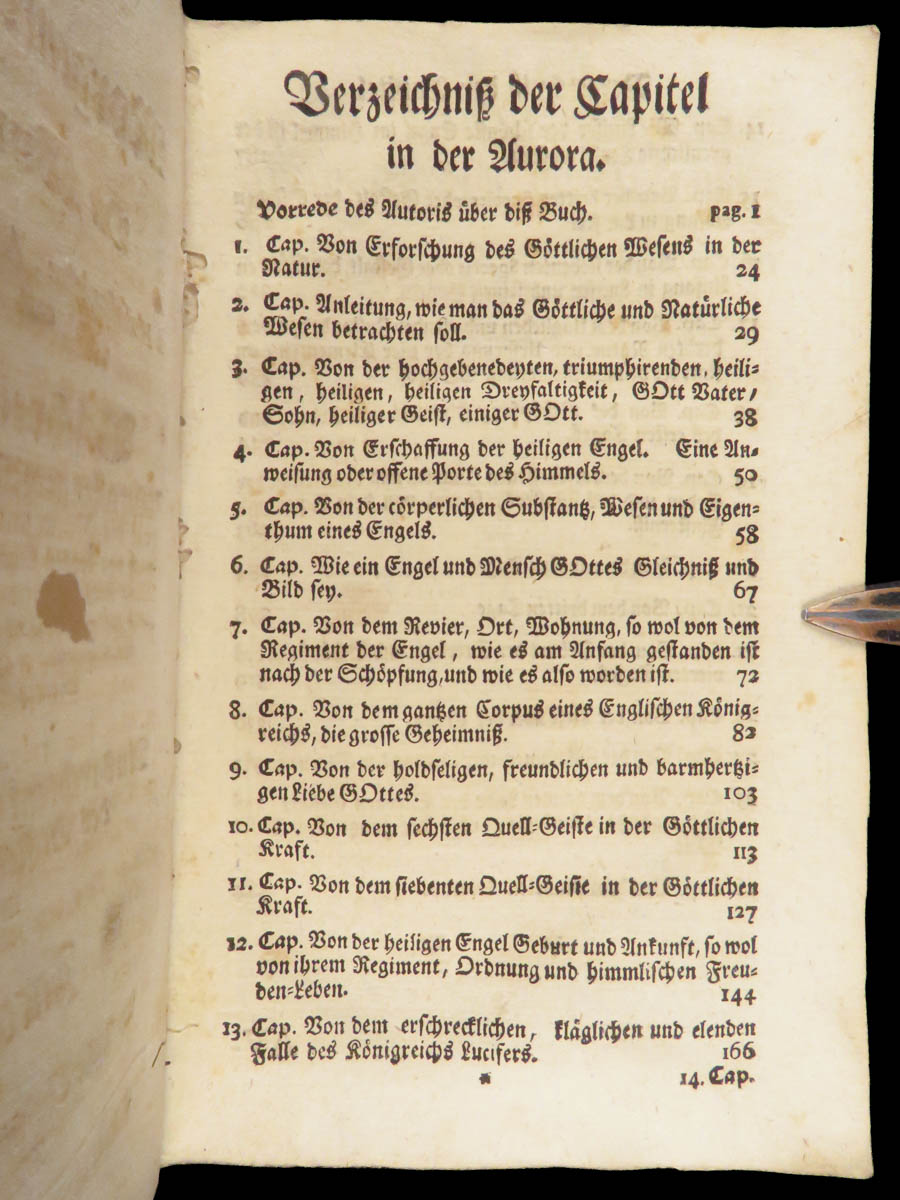 Verzeichniß der Capitel
in der Aurora.
Vorrede des Autoris über diß Buch. pag. 1
1. Cap. Von Erforschung des Göttlichen Wesens in der
Natur. 24
2. Cap. Anleitung, wie man das Göttliche und Natürliche
Wesen betrachten soll. 29
3. Cap. Von der hochgebenedeyten, triumphirenden, heili-
gen, heiligen, heiligen Dreyfaltigkeit, GOtt Vater/
Sohn, heiliger Geist, einiger GOtt. 38
4. Cap. Von Erschaffung der heiligen Engel. Eine An-
weisung oder offene Porte des Himmels. 50
5. Cap. Von der cörperlichen Substantz, Wesen und Eigen-
thum eines Engels. 58
6. Cap. Wie ein Engel und Mensch GOttes Gleichniß und
Bild sey. 67
7. Cap. Von dem Revier, Ort, Wohnung, so wol von dem
Regiment der Engel, wie es am Anfang gestanden ist
nach der Schöpfung, und wie es also worden ist. 72
8. Cap. Von dem gantzen Corpus eines Englischen König-
reichs, die grosse Geheimniß. 82
9. Cap. Von der holdseligen, freundlichen und barmhertzi-
gen Liebe GOttes. 103
10. Cap. Von dem sechsten Quell-Geiste in der Göttlichen
Kraft. 113
11. Cap. Von dem siebenten Quell-Geiste in der Göttlichen
Kraft. 127
12. Cap. Von der heiligen Engel Geburt und Ankunft, so wol
von ihrem Regiment, Ordnung und himmlischen Freu-
den-Leben. 144
13. Cap. Von dem erschrecklichen, kläglichen und elenden
Falle des Königreichs Lucifers. 166
* 14. Cap.